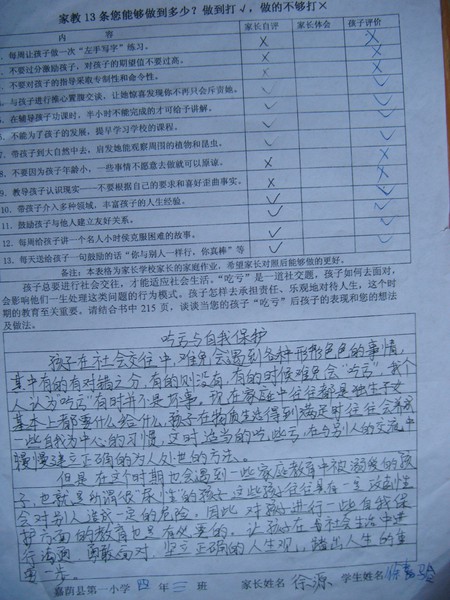 家教13条您能够做到多少？做到打√，做的不够打×
内 容 家长自评 家长体会 孩子评价
每周让孩子做一次“左手写字”练习。 × ×
不要过分激励孩子，对孩子的期望值不要过高。 × ×
不要对孩子的指导采取专制性和命令性。 √ √
与孩子进行推心置腹交谈，让她惊喜发现你不再只会斥责她。 √ √
在辅导孩子功课时，半小时不能完成的才可给予讲解。 √
不能为了孩子的发展，提早学习学校的课程。 √
7. 带孩子到大自然中去，启发她能观察周围的植物和昆虫。 √
8. 不要因为孩子年龄小，一些事情不愿意去做就可以原谅。 × ×
9. 教导孩子认识现实——不要根据自己的要求和喜好歪曲事实。 ×
10. 带孩子介入多种领域，丰富孩子的人生经验。 √ √
11. 鼓励孩子与他人建立友好关系。 √ √
12. 每周给孩子讲一个名人小时侯克服困难的故事。 √
13. 每天送给孩子一句鼓励的话“你与别人一样行，你真棒”等 √ √
备注：本表格为家长学校家长的家庭作业，希望家长对照后能够做的更好。
孩子总要进行社会交往，才能适应社会生活。“吃亏”是一道社交题，孩子如何去面对，
会影响他们一生处理这类问题的行为模式。孩子怎样去承担责任、乐观地对待人生，这个时
期的教育至关重要，请结合书中215页，谈谈当您的孩子“吃亏”后孩子的表现和您的想法
及做法。
吃亏与自我保护
孩子在社会交往中，难免会遇到各种形形色色的事情，
其中有的有对错之分，有的则没有，有的时候难免会“吃亏”我个
人认为吃亏有时并不是坏事，现在家庭中往往都是独生子女
基本上都要什么给什么，孩子在物质生活得到满足时往往会养成
一些自我为中心的习惯，这时适当的吃些亏，在与别人的交流中
慢慢建立正确的为人处世的方法。
但是在这个时期也会遇到一些家庭教育中被溺爱的孩
子，也就是所谓很任性的孩子，这些孩子往往具有一定攻击性
会对别人造成一定的危险，因此对孩子进行一些自我保
护方面的教育也是有必要的。让孩子在社会生活中进
行沟通，勇敢面对，坚立正确的人生观，踏出人生的重
要一步。
嘉荫县第一小学 四 年 三 班 家长姓名 徐源 学生姓名